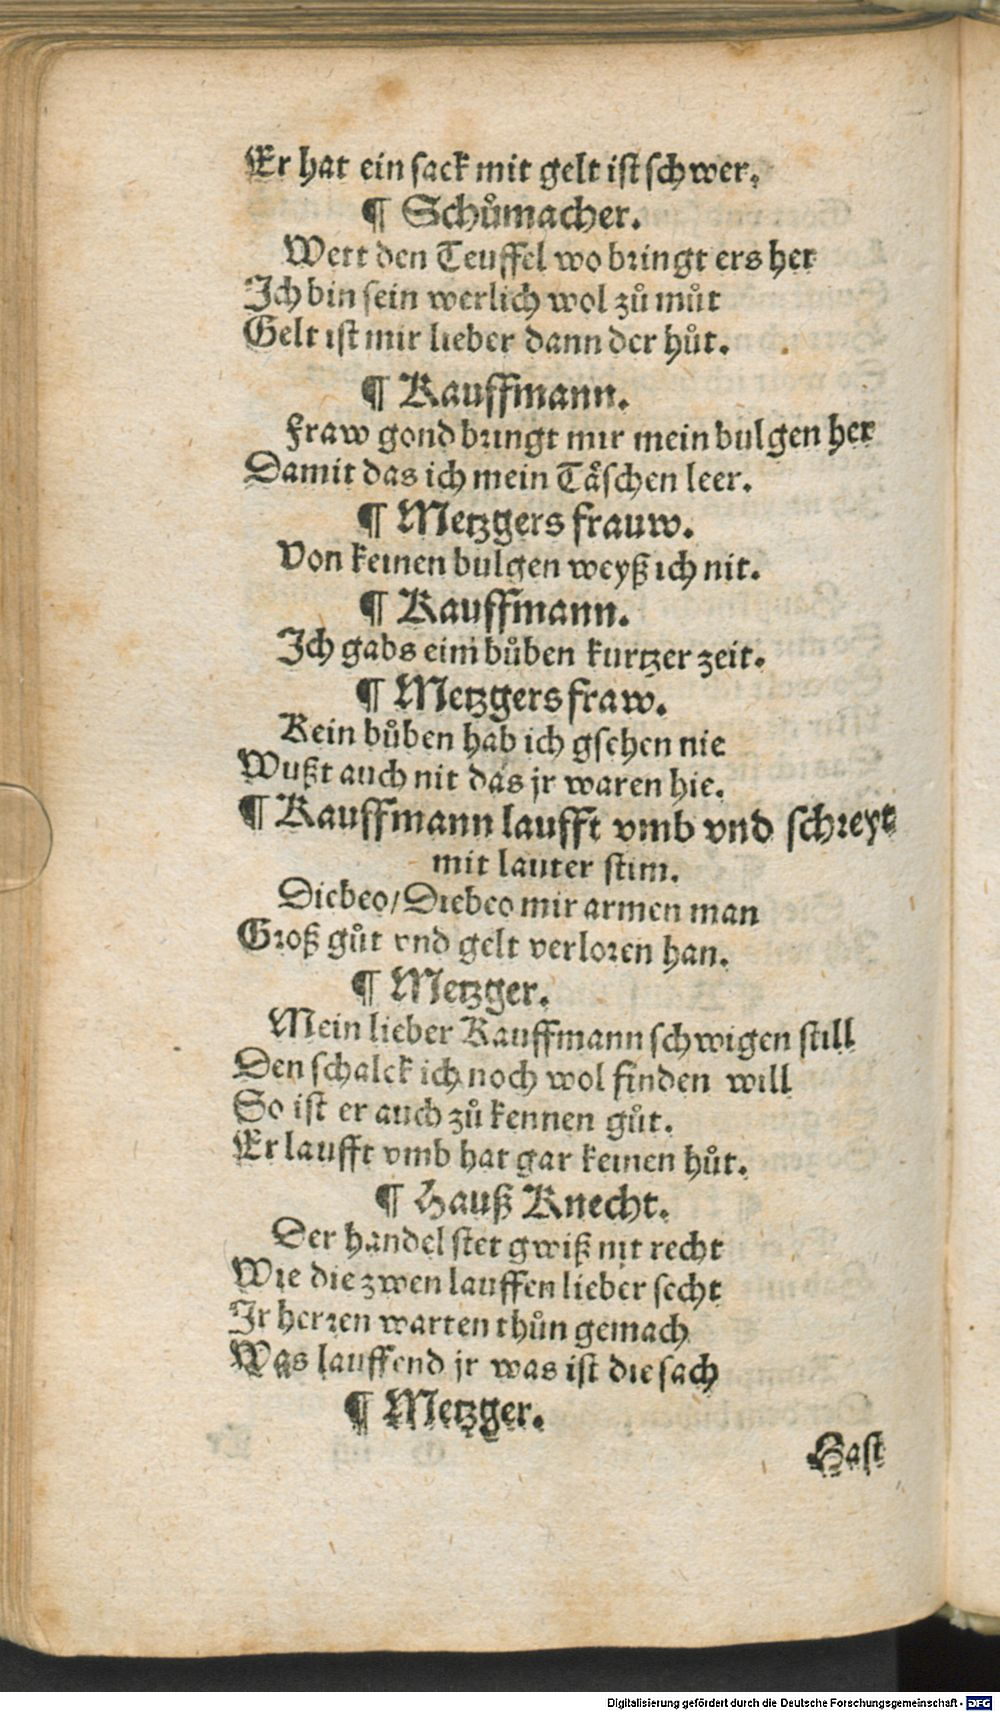 Er hat ein sack mit gelt ist schwer.
¶ Schůmacher.
Wett den Teuffel wo bringt ers her
Ich bin sein werlich wol zů můt
Gelt ist mir lieber dann der hůt.
¶ Kauffmann.
Fraw gond bringt mir mein bulgen her
Damit das ich mein Täschen leer.
¶ Metzgers frauw.
Von keinen bulgen weyß ich nit.
¶ Kauffmann.
Ich gabs eim bůben kurtzer zeit.
¶ Metzgers fraw.
Kein bůben hab ich gsehen nie
Wußt auch nit das jr waren hie.
¶ Kauffmann laufft vmb vnd schreyt
mit lauter stim.
Diebeo/Diebeo mir armen man
Groß gůt vnd gelt verloren han.
¶ Metzger.
Mein lieber Kauffmann schwigen still
Den schalck ich noch wol finden will
So ist er auch zů kennen gůt.
Er laufft vmb hat gar keinen hůt.
¶ Hauß Knecht.
Der handel stet gwiß nit recht
Wie die zwen lauffen lieber secht
Ir herren warten thůn gemach
Was lauffend jr was ist die sach
¶ Metzger.
Hast
Digitalisierung gefördert durch die Deutsche Forschungsgemeinschaft - DFG